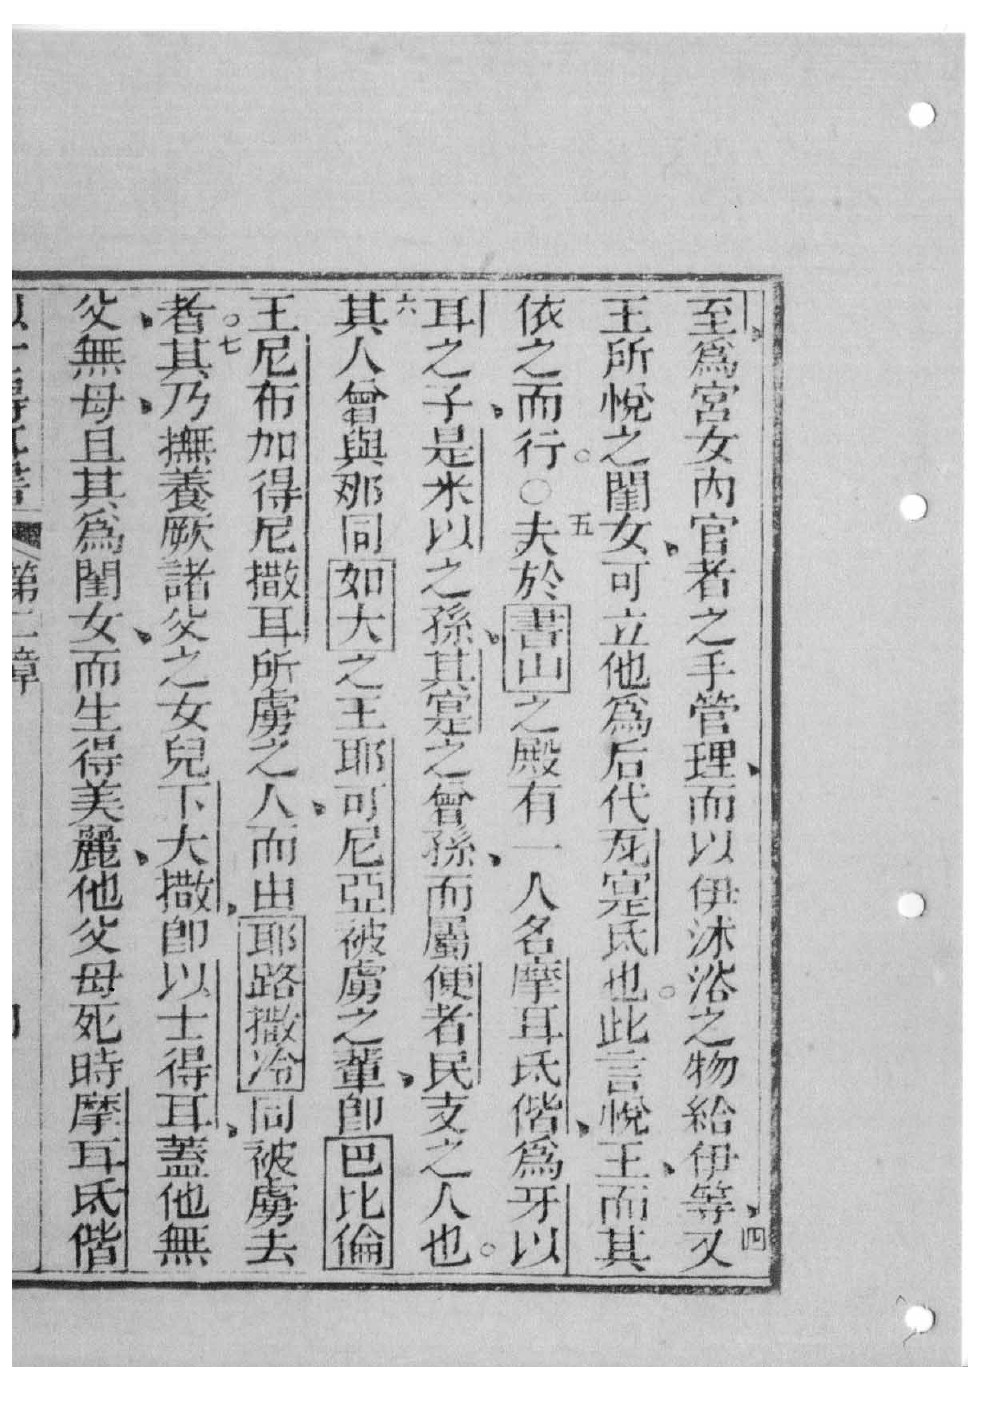 至爲宮女內官者之手管理而以伊沐浴之物給伊等四又
王所悅之閨女可立他爲后代瓦寔氐也此言悅王而其
依之而行○五夫於書山之殿有一人名摩耳氐偕爲牙以
耳之子是米以之孫其寔之曾孫而屬便者民支之人也
六其人曾與那同如大之王耶可尼亞被虜之輩卽巴比倫
王尼布加得尼撒耳所虜之人而由耶路撒冷同被虜去
者七其乃撫養厥諸父之女兒下大撒卽以士得耳蓋他無
父無母且其爲閨女而生得美麗他父母死時摩耳氐偕
以士得耳書 第二章